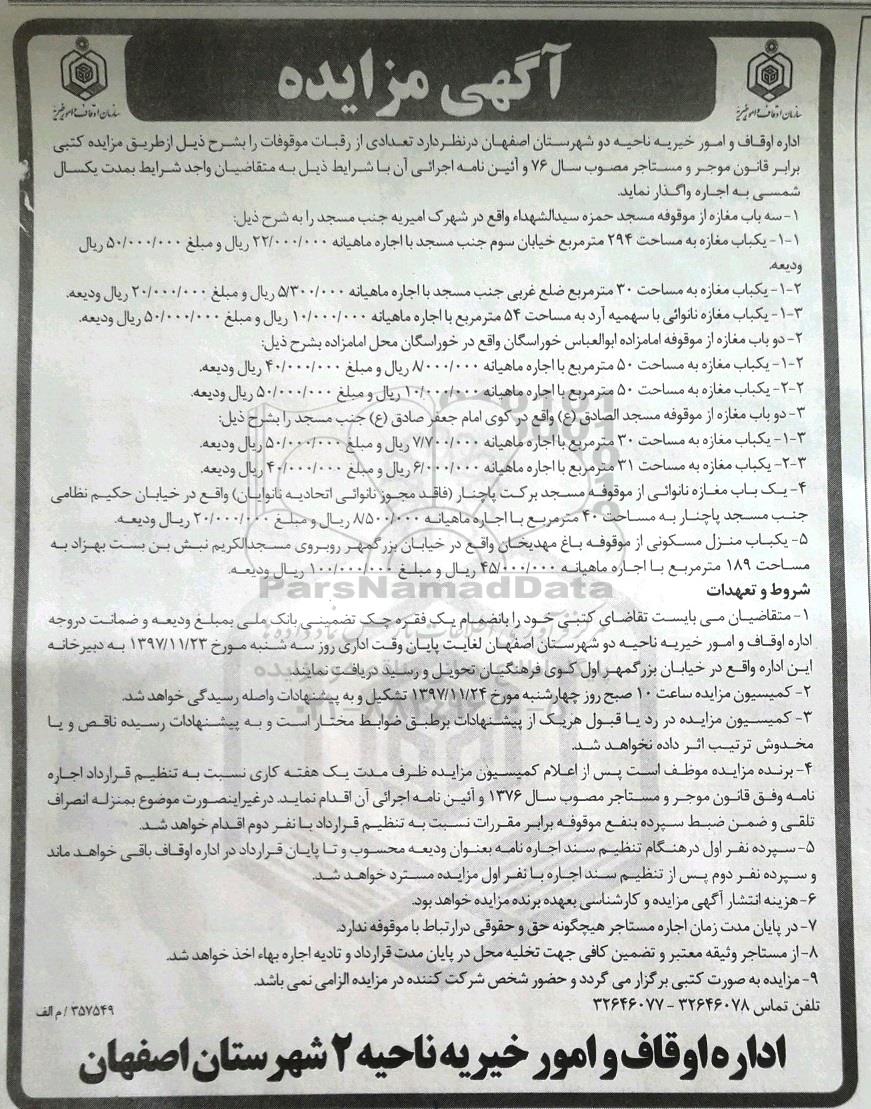 آگهی مزایده
سازمان اوقاف و امور خیریه
سازمان اوقاف و امور خیریه
اداره اوقاف و امور خیریه ناحیه دو شهرستان اصفهان درنظردارد تعدادی از رقبات موقوفات را بشرح ذیل ازطریق مزایده کتبی
برابر قانون موجر و مستاجر مصوب سال ۷۶ و آئین نامه اجرائی آن با شرایط ذیل به متقاضیان واجد شرایط بمدت یکسال
شمسی به اجاره واگذار نماید.
۱- سه باب مغازه از موقوفه مسجد حمزه سیدالشهداء واقع در شهرک امیریه جنب مسجد را به شرح ذیل:
۱-۱- یکباب مغازه به مساحت ۲۹۴ مترمربع خیابان سوم جنب مسجد با اجاره ماهیانه ۲۲/۰۰۰/۰۰۰ ریال و مبلغ ۵۰/۰۰۰/۰۰۰ ریال
ودیعه.
۱-۲- یکباب مغازه به مساحت ۳۰ مترمربع ضلع غربی جنب مسجد با اجاره ماهیانه ۵/۳۰۰/۰۰۰ ریال و مبلغ ۲۰/۰۰۰/۰۰۰ ریال ودیعه.
۱-۳- یکباب مغازه نانوائی با سهمیه آرد به مساحت ۵۴ مترمربع با اجاره ماهیانه ۱۰/۰۰۰/۰۰۰ ریال و مبلغ ۵۰/۰۰۰/۰۰۰ ریال ودیعه.
۲- دو باب مغازه از موقوفه امامزاده ابوالعباس خوراسگان واقع در خوراسگان محل امامزاده بشرح ذیل:
۲-۱- یکباب مغازه به مساحت ۵۰ مترمربع با اجاره ماهیانه ۸/۰۰۰/۰۰۰ ریال و مبلغ ۴۰/۰۰۰/۰۰۰ ریال ودیعه.
۲-۲- یکباب مغازه به مساحت ۵۰ مترمربع با اجاره ماهیانه ۱۰/۰۰۰/۰۰۰ ریال و مبلغ ۵۰/۰۰۰/۰۰۰ ریال ودیعه.
۳- دو باب مغازه از موقوفه مسجد الصادق (ع) واقع در کوی امام جعفر صادق (ع) جنب مسجد را بشرح ذیل:
۳-۱- یکباب مغازه به مساحت ۳۰ مترمربع با اجاره ماهیانه ۷/۷۰۰/۰۰۰ ریال و مبلغ ۵۰/۰۰۰/۰۰۰ ریال ودیعه.
۳-۲- یکباب مغازه به مساحت ۳۱ مترمربع با اجاره ماهیانه ۶/۰۰۰/۰۰۰ ریال و مبلغ ۴۰/۰۰۰/۰۰۰ ریال ودیعه.
۴- یک باب مغازه نانوائی از موقوفه مسجد برکت پاچنار (فاقد مجوز نانوائی اتحادیه نانوایان) واقع در خیابان حکیم نظامی
جنب مسجد پاچنار به مساحت ۴۰ مترمربع با اجاره ماهیانه ۸/۵۰۰/۰۰۰ ریال و مبلغ ۲۰/۰۰۰/۰۰۰ ریال ودیعه.
۵- یکباب منزل مسکونی از موقوفه باغ مهدیخان واقع در خیابان بزرگمهر روبروی مسجدالکریم نبش بن بست بهزاد به
مساحت ۱۸۹ مترمربع با اجاره ماهیانه ۴۵/۰۰۰/۰۰۰ ریال و مبلغ ۱۰۰/۰۰۰/۰۰۰ ریال ودیعه.
ParsNamadData
شروط و تعهدات
۱- متقاضیان می بایست تقاضای کتبی خود را بانضمام یک فقره چک تضمینی بانک ملی بمبلغ ودیعه و ضمانت دروجه
اداره اوقاف و امور خیریه ناحیه دو شهرستان اصفهان لغایت پایان وقت اداری روز سه شنبه مورخ ۱۳۹۷/۱۱/۲۳ به دبیرخانه
این اداره واقع در خیابان بزرگمهر اول کوی فرهنگیان تحویل و رسید دریافت نمایند.
۲- کمیسیون مزایده ساعت ۱۰ صبح روز چهارشنبه مورخ ۱۳۹۷/۱۱/۲۴ تشکیل و به پیشنهادات واصله رسیدگی خواهد شد.
۳- کمیسیون مزایده در رد یا قبول هریک از پیشنهادات برطبق ضوابط مختار است و به پیشنهادات رسیده ناقص و یا
مخدوش ترتیب اثر داده نخواهد شد.
۴- برنده مزایده موظف است پس از اعلام کمیسیون مزایده ظرف مدت یک هفته کاری نسبت به تنظیم قرارداد اجاره
نامه وفق قانون موجر و مستاجر مصوب سال ۱۳۷۶ و آئین نامه اجرائی آن اقدام نماید. درغیراینصورت موضوع بمنزله انصراف
تلقی و ضمن ضبط سپرده بنفع موقوفه برابر مقررات نسبت به تنظیم قرارداد با نفر دوم اقدام خواهد شد.
۵- سپرده نفر اول درهنگام تنظیم سند اجاره نامه بعنوان ودیعه محسوب و تا پایان قرارداد در اداره اوقاف باقی خواهد ماند
و سپرده نفر دوم پس از تنظیم سند اجاره با نفر اول مزایده مسترد خواهد شد.
۶- هزینه انتشار آگهی مزایده و کارشناسی بعهده برنده مزایده خواهد بود.
۷- در پایان مدت زمان اجاره مستاجر هیچگونه حق و حقوقی درارتباط با موقوفه ندارد.
۸- از مستاجر وثیقه معتبر و تضمین کافی جهت تخلیه محل در پایان مدت قرارداد و تادیه اجاره بهاء اخذ خواهد شد.
۹- مزایده به صورت کتبی برگزار می گردد و حضور شخص شرکت کننده در مزایده الزامی نمی باشد.
تلفن تماس ۳۲۶۴۶۰۷۸ - ۳۲۶۴۶۰۷۷
۳۵۷۵۴۹ / م الف
اداره اوقاف و امور خیریه ناحیه ۲ شهرستان اصفهان